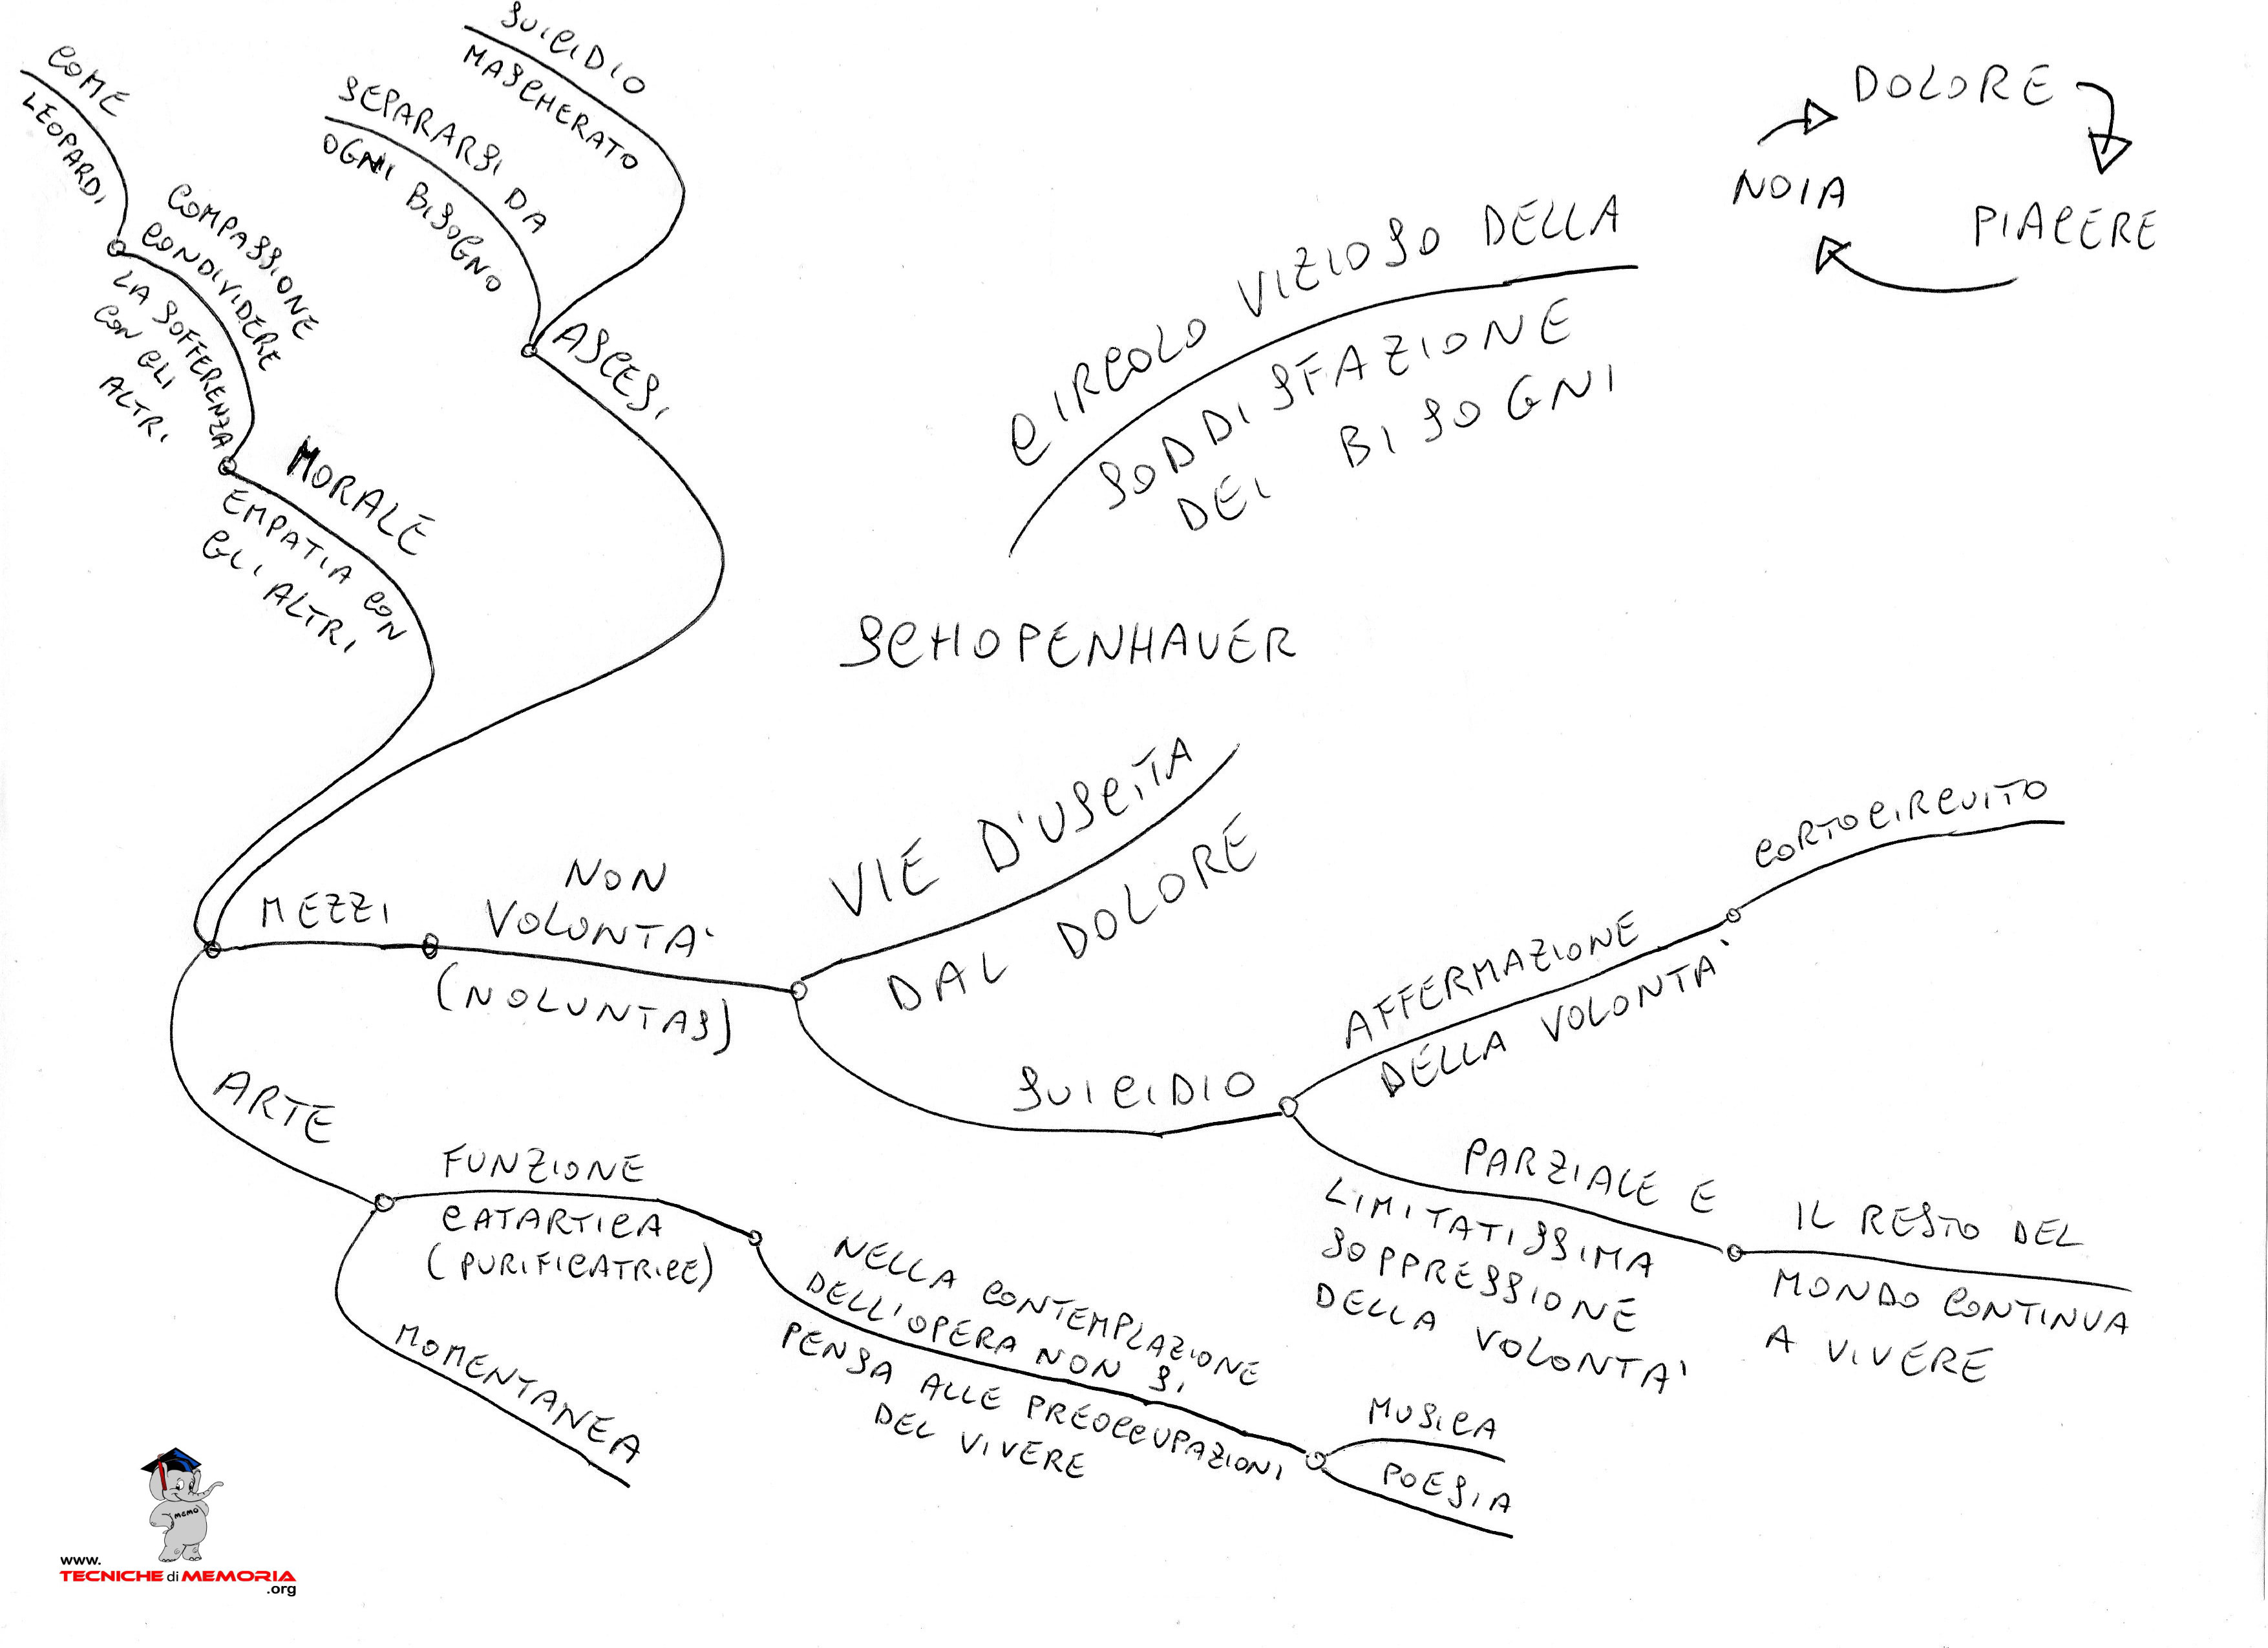 SUICIDIO
MASCHERATO
COME
LEOPARDI
SEPARARSI DA
OGNI BISOGNO
COMPASSIONE
CONDIVIDERE
LA SOFFERENZA
CON GLI
ALTRI
ASCESI
MORALE
EMPATIA CON
GLI ALTRI
DOLORE
NOIA
PIACERE
CIRCOLO VIZIOSO DELLA
SODDISFAZIONE
DEI BISOGNI
SCHOPENHAUER
VIE D'USCITA
DAL DOLORE
MEZZI
NON
VOLONTA'
(NOLUNTAS)
CORTOCIRCUITO
AFFERMAZIONE
DELLA VOLONTA'
SUICIDIO
PARZIALE E
LIMITATISSIMA
SOPPRESSIONE
DELLA VOLONTA'
IL RESTO DEL
MONDO CONTINUA
A VIVERE
ARTE
FUNZIONE
CATARTICA
(PURIFICATRICE)
MOMENTANEA
NELLA CONTEMPLAZIONE
DELL'OPERA NON SI
PENSA ALLE PREOCCUPAZIONI
DEL VIVERE
MUSICA
POESIA
MEMO
www.
TECNICHE di MEMORIA
.org